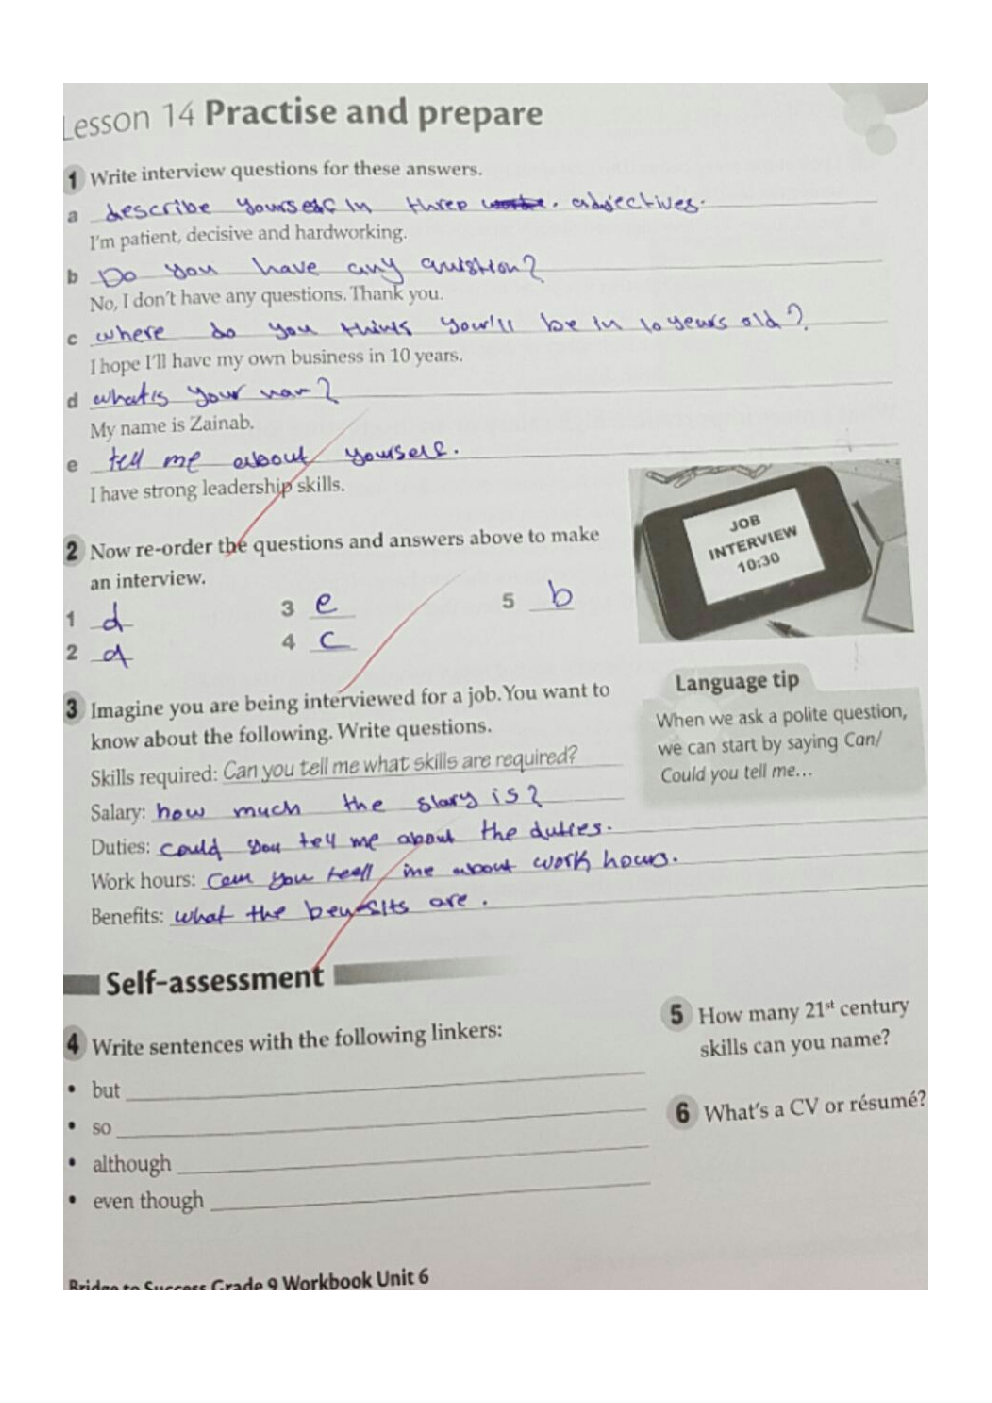 Lesson 14 Practise and prepare
1 Write interview questions for these answers.
a describe yourself in three adjectives.
I'm patient, decisive and hardworking.
b Do you have any quistion?
No, I don't have any questions. Thank you.
c where do you think your'll be in 10 years old?
I hope I'll have my own business in 10 years.
d whatis your nam?
My name is Zainab.
e tell me about yourself.
I have strong leadership skills.
JOB
INTERVIEW
10:30
2 Now re-order the questions and answers above to make
an interview.
1 d
3 e
5 b
2 a
4 c
3 Imagine you are being interviewed for a job. You want to
know about the following. Write questions.
Skills required: Can you tell me what skills are required?
Salary: how much the slary is?
Duties: could you tell me about the duties.
Work hours: can you teall me about work hours.
Benefits: what the benefits are.
Language tip
When we ask a polite question,
we can start by saying Can/
Could you tell me...
Self-assessment
4 Write sentences with the following linkers:
• but
• so
• although
• even though
5 How many 21st century
skills can you name?
6 What's a CV or résumé?
Bridge to Success Grade 9 Workbook Unit 6